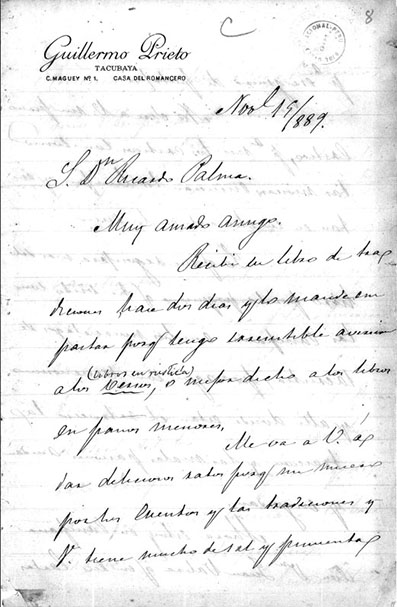 C
8
NACIONAL-PERU
Guillermo Prieto
TACUBAYA
C. MAGUEY Nº 1. CASA DEL ROMANCERO
Novbl 15/889.
S. Dn Ricardo Palma.
Muy amado amigo.
Recibí su libro de tra
diciones hace dos dias y lo mandé em
pastar porq tengo irresistible aversion
(Libros en rustica)
a los , o mejor dicho a los libros
en paños menores.
Me va a V. á
dar deliciosos ratos porq me muero
por los Cuentos y las tradiciones y
V. tiene mucho de sal y pimienta